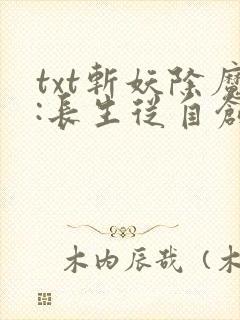 txt斬妖除魔
:長生從自創
木内辰哉（木